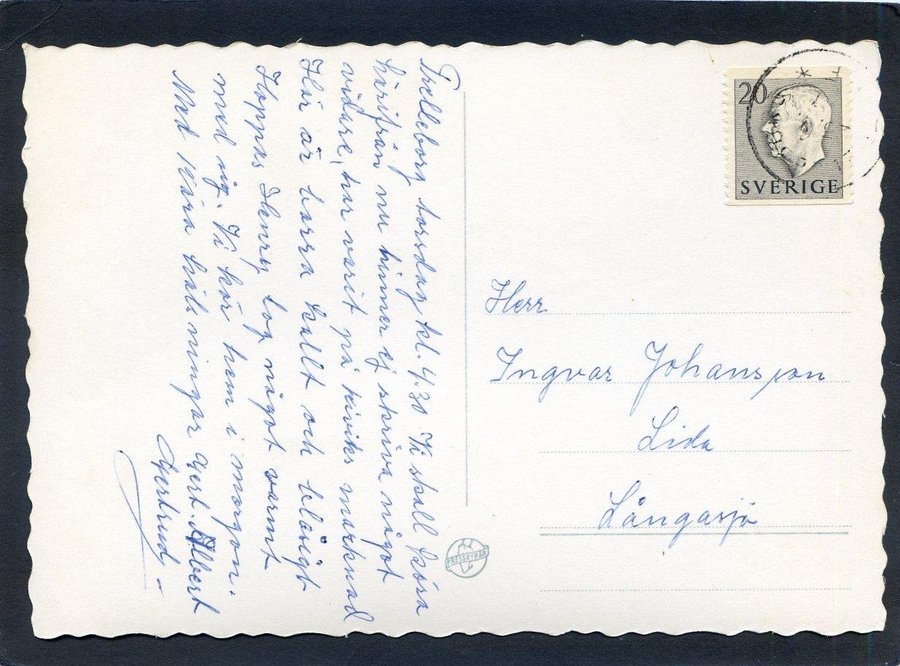 Trelleborg torsdag kl. 4.30 Vi skall köra
härifrån nu hinner ej skriva något
vidare, har varit på kiviks marknad
Här är barra kallt och blåsigt
Hoppas Henry tog något varmt
med sig. Vi kör hem i morgon.
Med kära hälsningar Gert Albert
Gertrud –
20
SVERIGE
Herr
Ingvar Johansson
Lida
Långasjö
PRESSBYRÅN